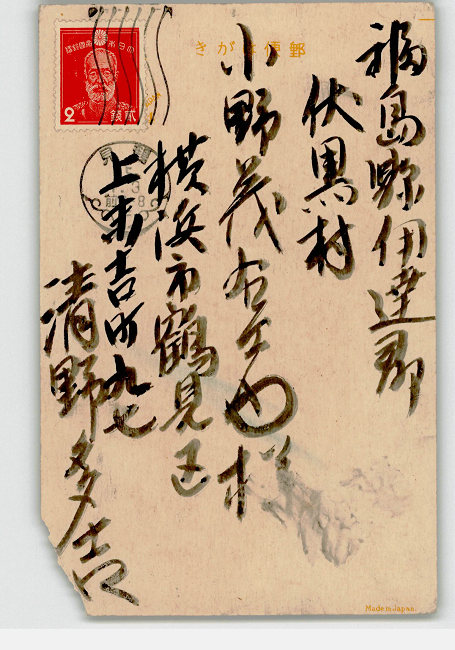 きがは便郵
福島縣伊達郡
伏黒村
小野茂右エ門様
横浜市鶴見区
上末吉町九七
清野多吉
2
貳銭
Made in Japan.